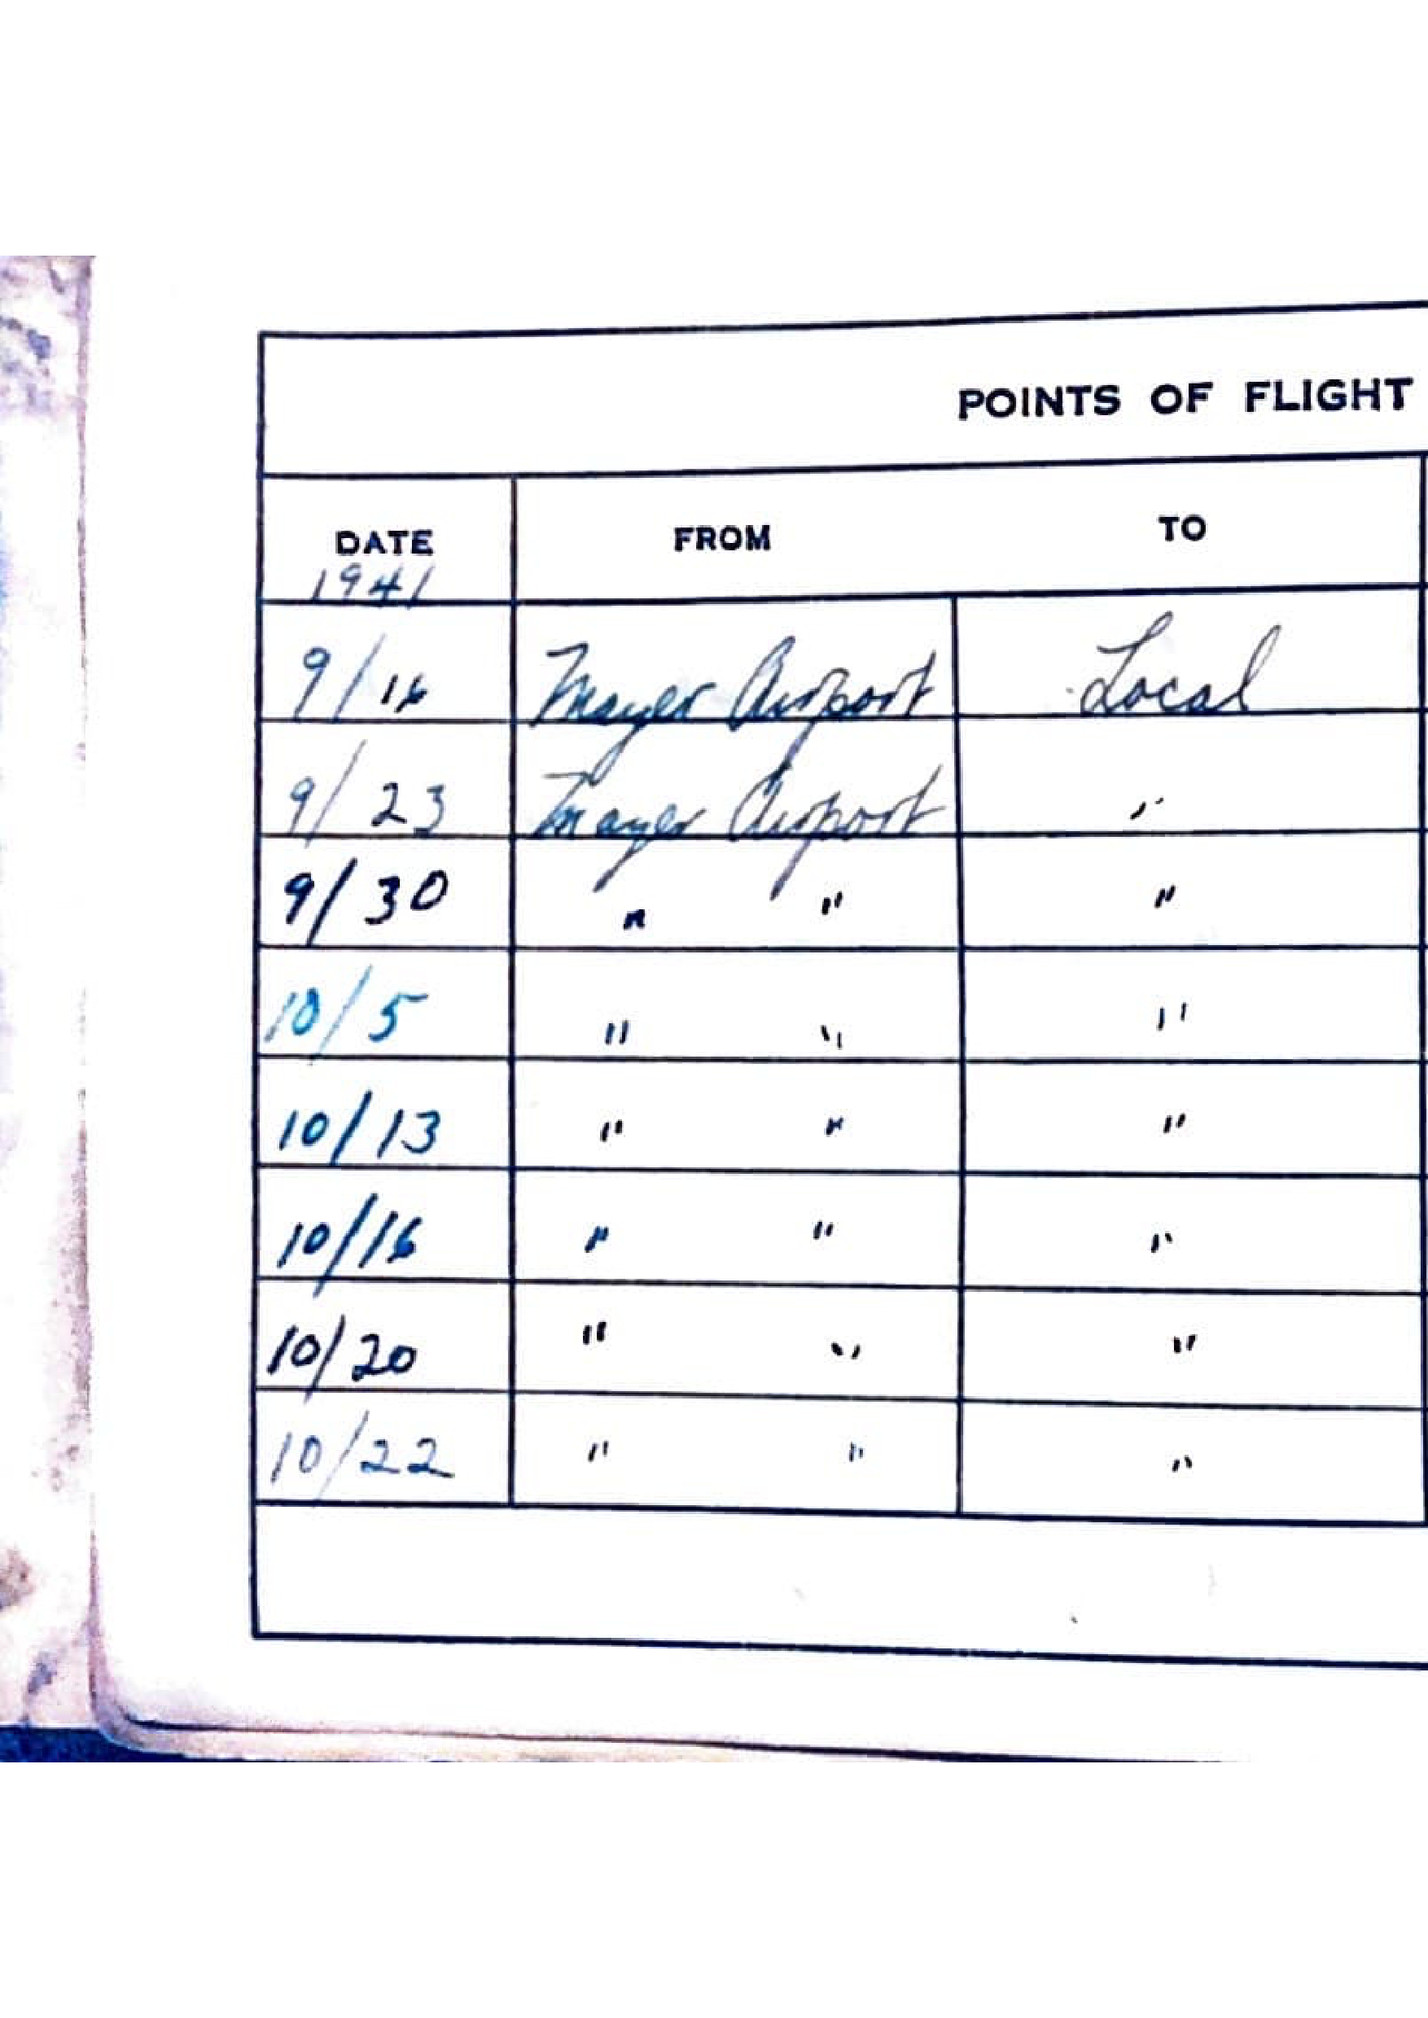 POINTS OF FLIGHT
DATE FROM TO
1941
9/16 Mayer Airport Local
9/23 Mayer Airport "
9/30 " " "
10/5 " " "
10/13 " " "
10/16 " " "
10/20 " " "
10/22 " " "